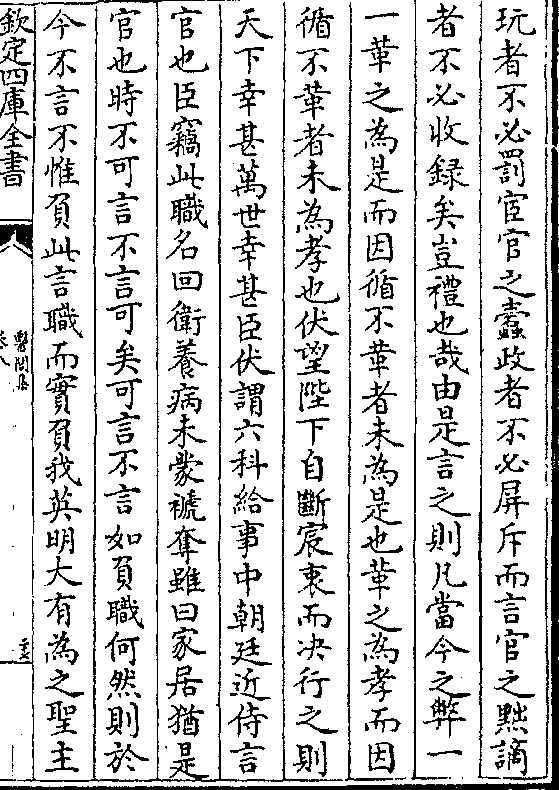 玩者不必罰宦官之蠹政者不必屏斥而言官之黜謫
者不必收録矣豈禮也哉由是言之則凡當今之弊一
一革之為是而因循不革者未為是也革之為孝而因
循不革者未為孝也伏望陛下自斷宸衷而決行之則
天下幸甚萬世幸甚臣伏謂六科給事中朝廷近侍言
官也臣竊此職名回衛養病未蒙褫奪雖曰家居猶是
官也時不可言不言可矣可言不言如負職何然則於
今不言不惟負此言職而實負我英明大有為之聖主
欽定四庫全書
醫閭集
卷八